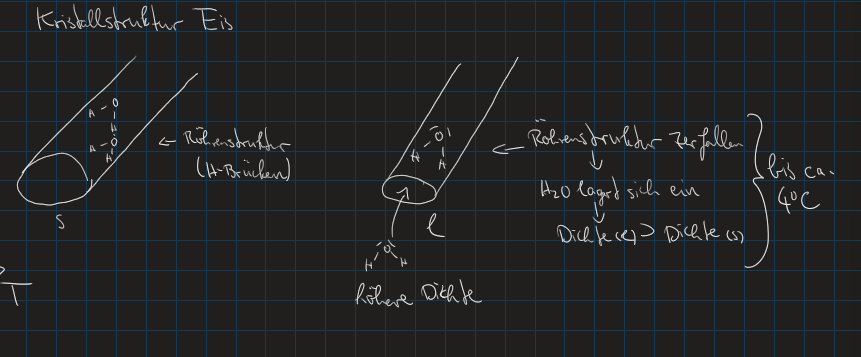 Kristallstruktur Eis
H - O
H
H - O
H
← Röhrenstruktur
(H-Brücken)
s
O
H H
← Röhrenstruktur zerfallen
↓
H2O lagert sich ein
↓
Dichte(l) > Dichte(s)
bis ca.
4°C
l
O
H H
höhere Dichte
T